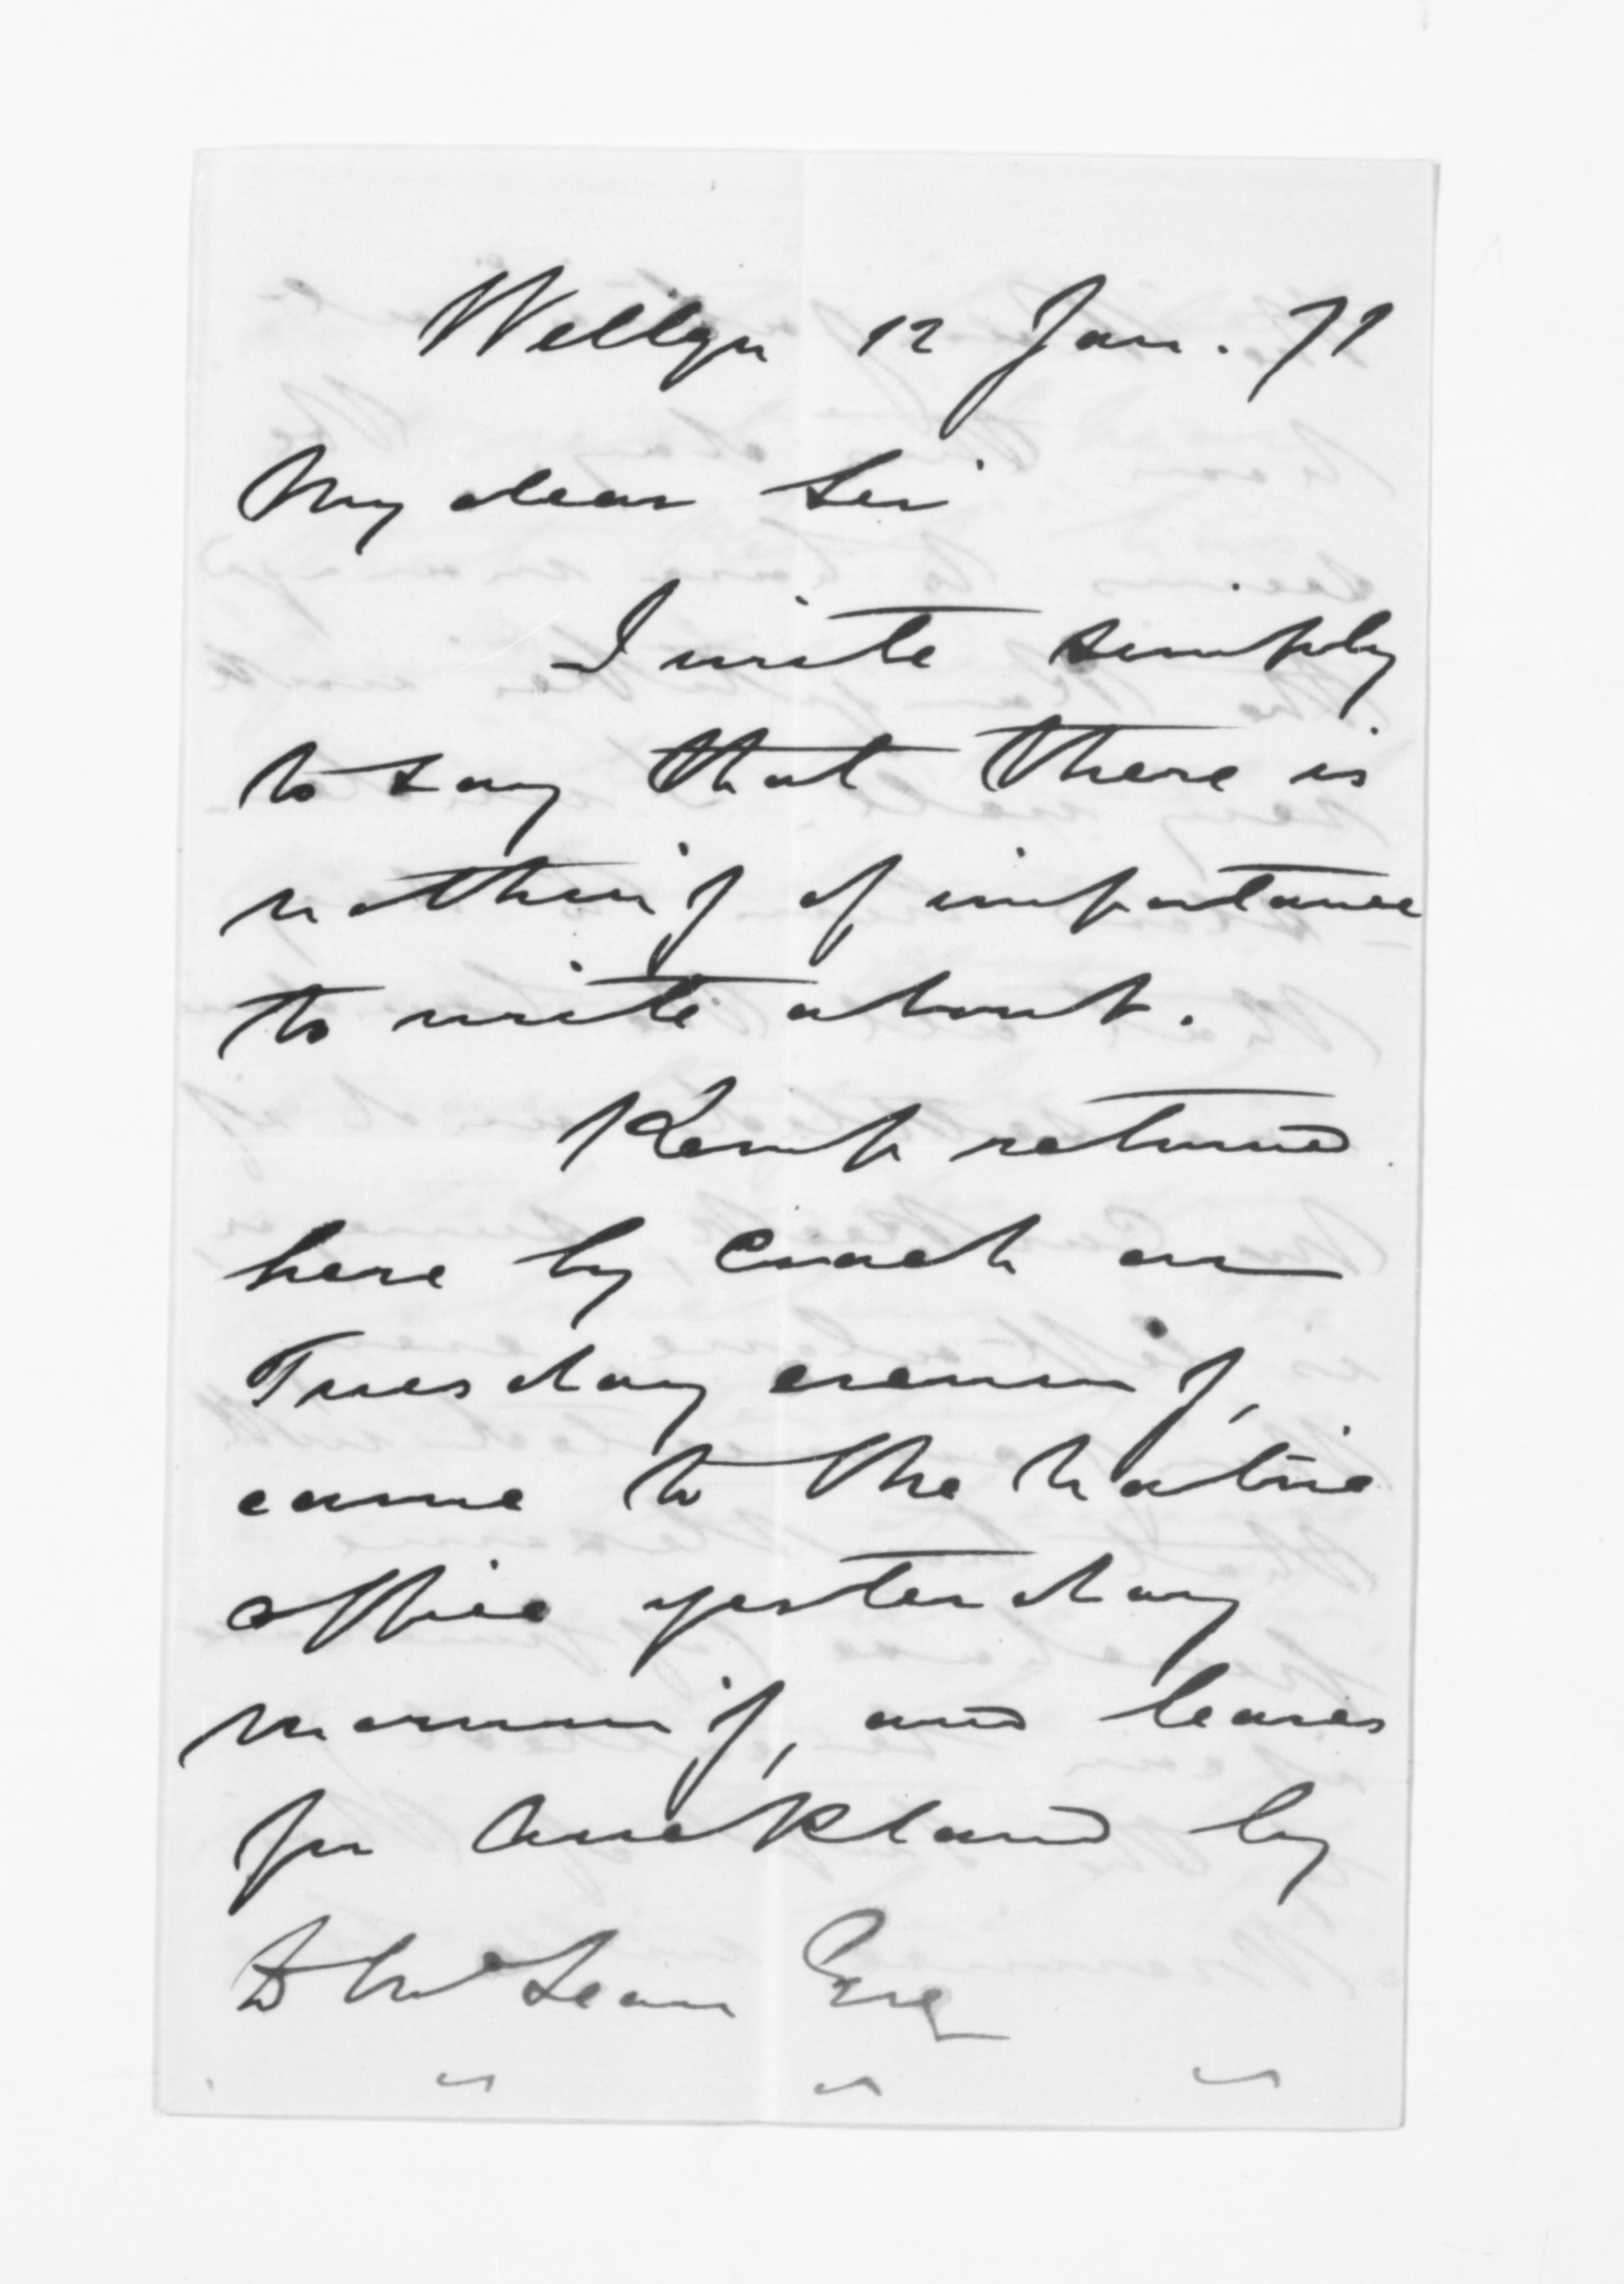 Wellgn 12 Jan. 71
My dear Sir
I write simply
to say that there is
nothing of importance
to write about.
Kemp returned
here by Coach on
Tuesday evening,
came to the Native
Office yesterday
morning, and leaves
for Auckland by
D McLean Esq
" " "